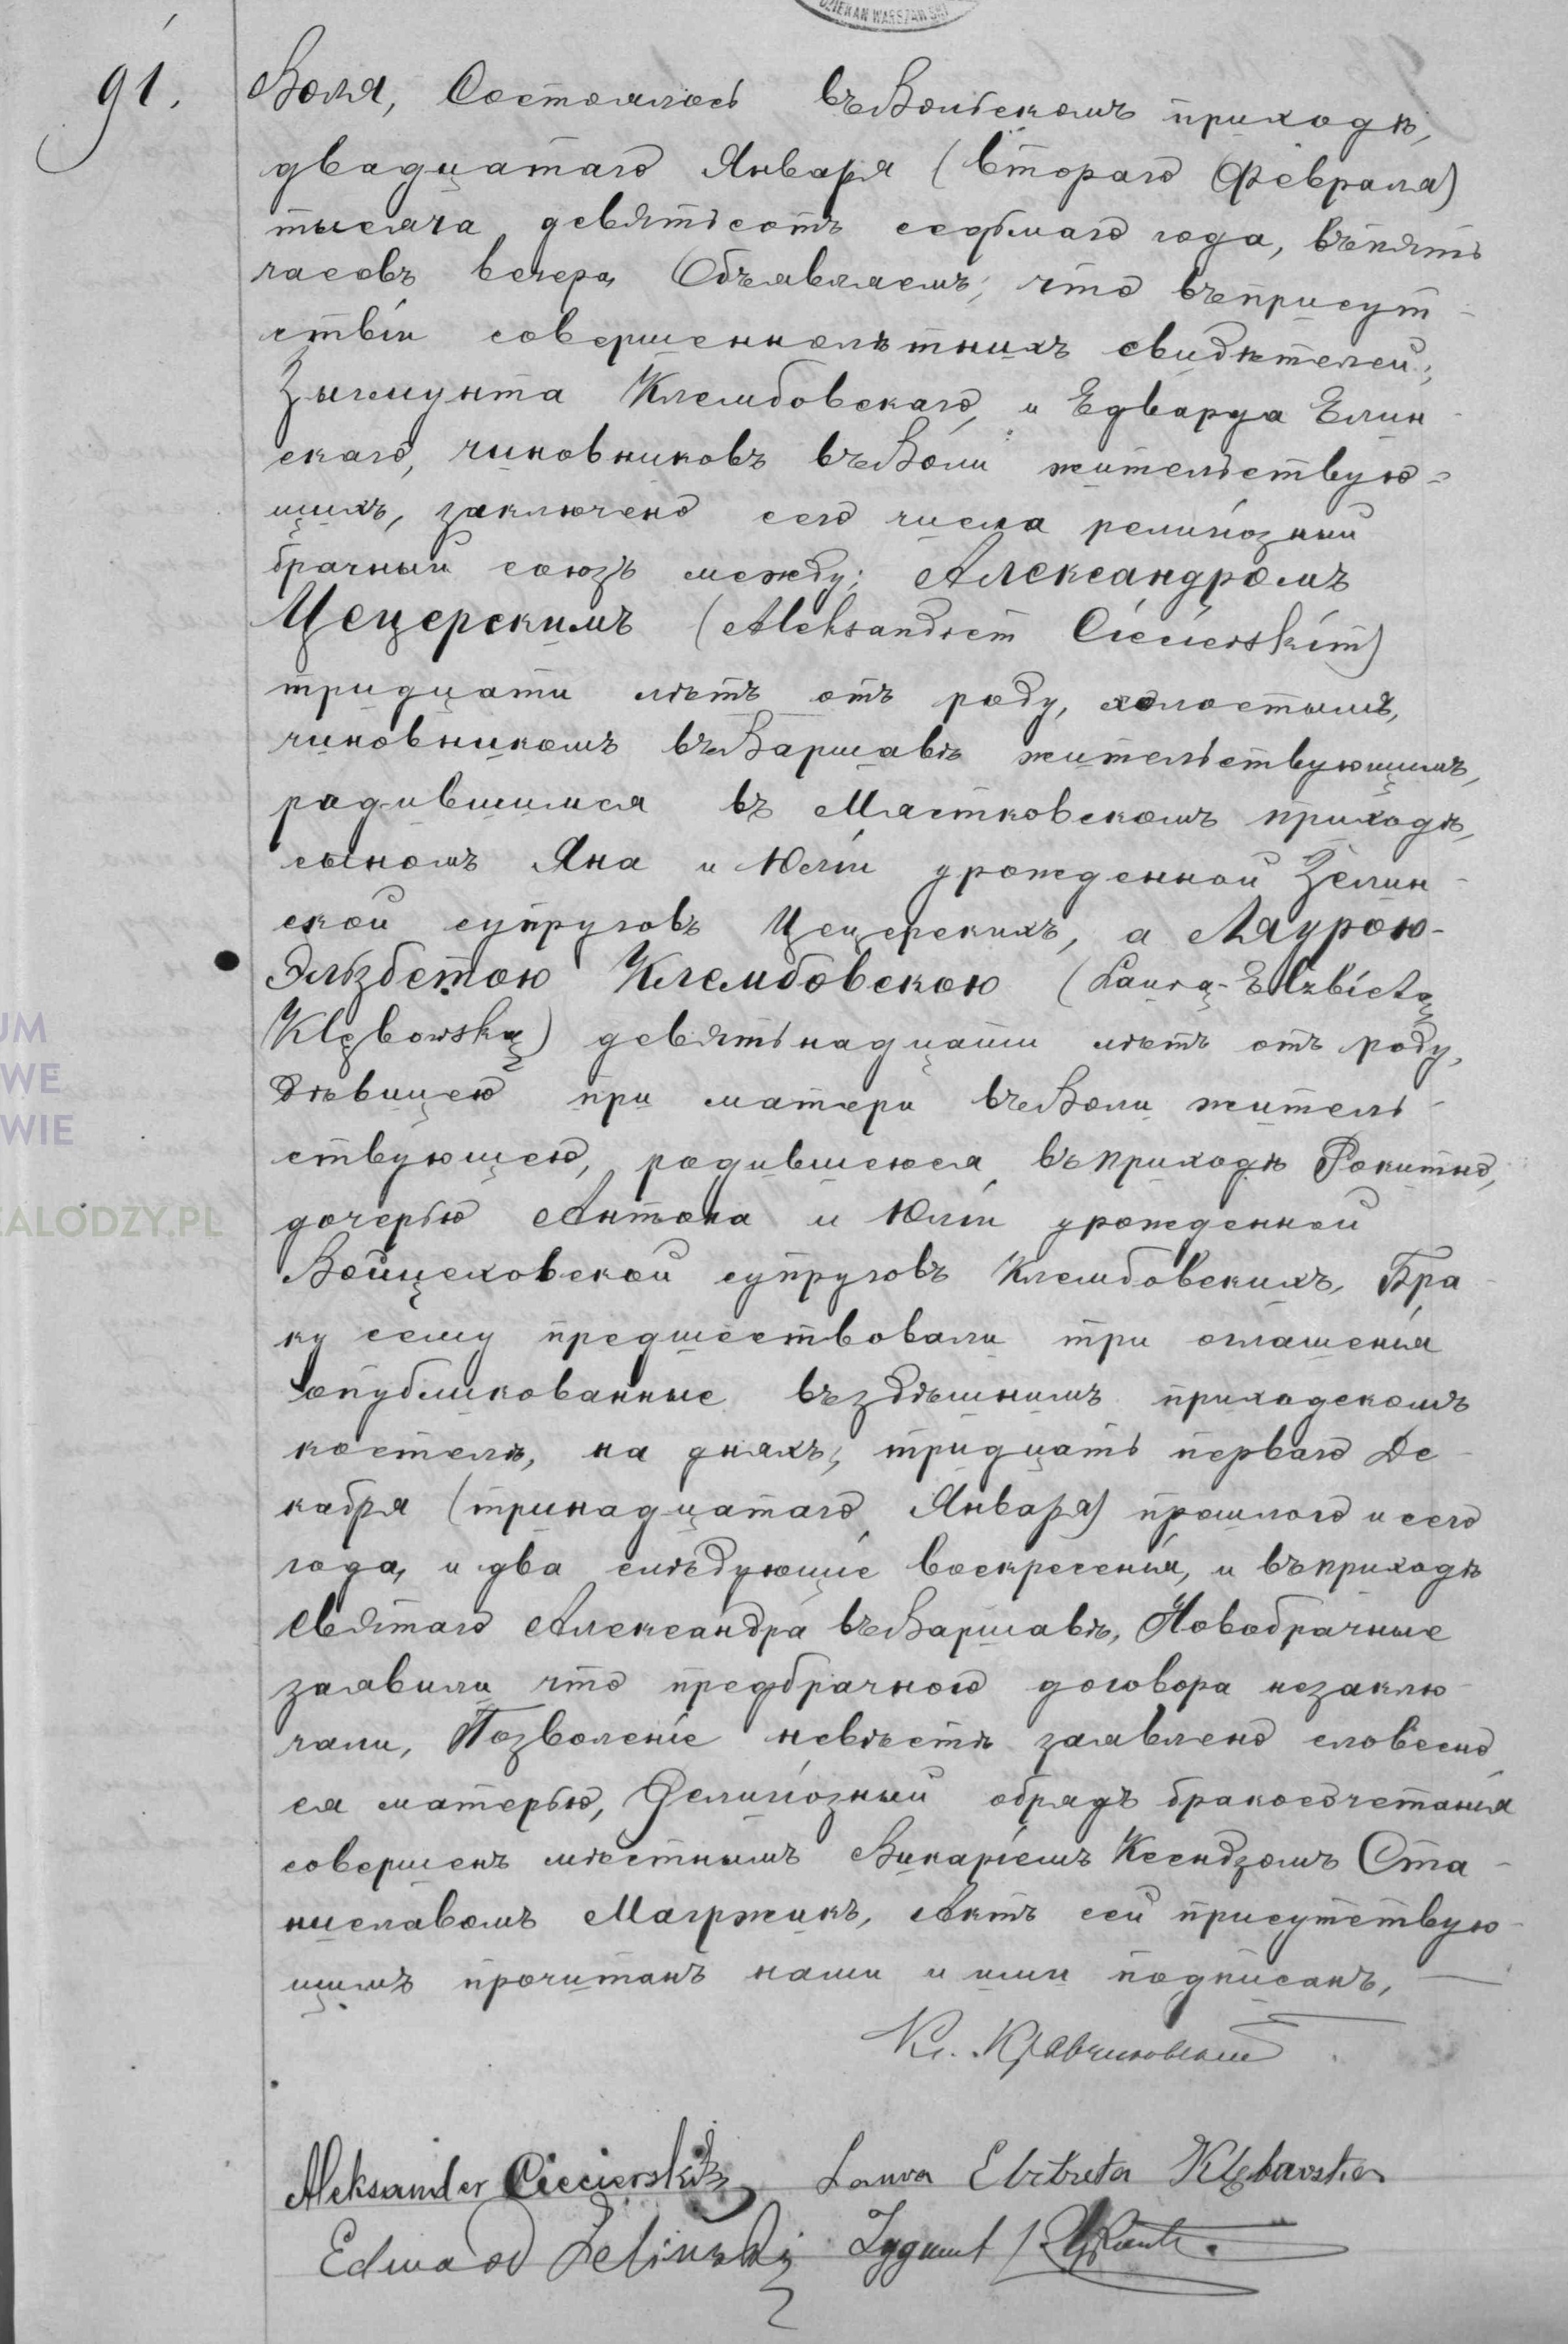 DZIEKAN WARSZAWSKI
91.
Воля, Состоялось въ Вольскомъ приходѣ,
двадцатаго Января (втораго Февраля)
тысяча девятьсотъ седьмаго года, въ пять
часовъ вечера, Объявляемъ; что въ присут-
ствіи совершеннолѣтнихъ свидѣтелей;
Зыгмунта Клембовскаго, и Едварда Елин-
скаго, чиновниковъ въ Воли жительствую-
щихъ, заключенъ сего числа религіозный
брачный союзъ между; Александромъ
Цецерскимъ (Aleksandrem Ciecierskim)
тридцати лѣтъ отъ роду, холостымъ,
чиновникомъ въ Варшавѣ жительствующимъ,
родившимся въ Мястковскомъ приходѣ,
сыномъ Яна и Юліи урожденной Зелин-
ской супруговъ Цецерскихъ, а Лаурою-
Эльзбетою Клембовскою (Laurą-Elżbietą
Klębowską) девятьнадцати лѣтъ отъ роду,
дѣвицею при матери въ Воли житель-
ствующею, родившеюся въ приходѣ Рокитно,
дочерью Антона и Юліи урожденной
Войцеховской супруговъ Клембовскихъ, Бра-
ку сему предшествовали три оглашенія
опубликованные въ здѣшнимъ приходскомъ
костелѣ, на дняхъ; тридцать перваго Де-
кабря (тринадцатаго Января) прошлого и сего
года, и два слѣдующіе воскресенія, и въ приходѣ
Святаго Александра въ Варшавѣ, Новобрачные
заявили что предбрачного договора незаклю-
чали, Позволеніе невѣстѣ заявлено словесно
ея матерью, Религіозный обрядъ бракосочетанія
совершенъ мѣстнымъ Викаріемъ Ксендзомъ Ста-
ниславомъ Магржикъ, Актъ сей присутствую-
щимъ прочитанъ нами и ими подписанъ,
Aleksander Ciecierski Laura Elżbieta Klębowska
Edward Zygmunt
UM
WE
WIE
EALODZY.PL